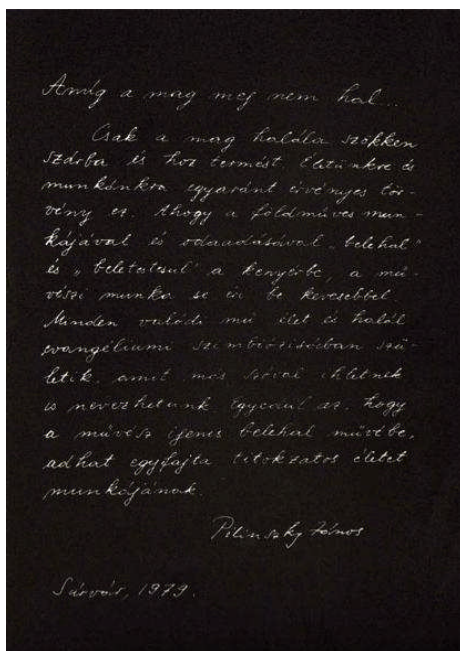 Amíg a mag meg nem hal...
Csak a mag halála szökken
szárba és hoz termést. Életünkre és
munkánkra egyaránt érvényes tör-
vény ez. Ahogy a földműves mun-
kájával és odaadásával „belehal"
és „beletestesül" a kenyérbe, a mű-
vészi munka se éri be kevesebbel.
Minden valódi mű élet és halál
evangéliumi szimbiózisában szü-
letik, amit más szóval ihletnek
is nevezhetünk. Egyedül az, hogy
a művész igenis belehal művébe,
adhat egyfajta titokzatos életet
munkájának.
Pilinszky János
Sárvár, 1979.